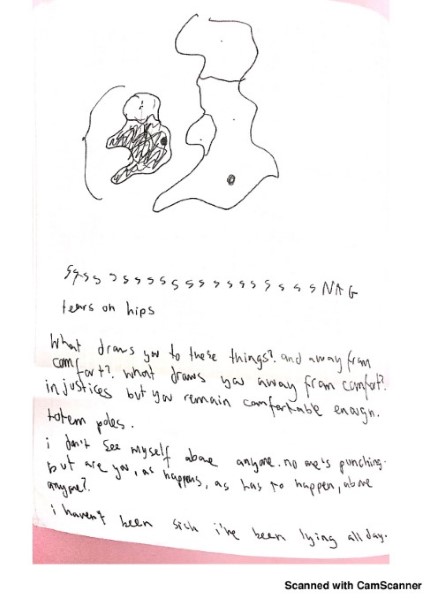 sssssssssssssssssssNAG
tears on hips
What draws you to these things? and away from
comfort? what draws you away from comfort?
injustices but you remain comfortable enough.
totem poles.
i don't see myself above anyone. no one's punching.
but are you, as happens, as has to happen, above
anyone?
i haven't been sick i've been lying all day.
Scanned with CamScanner